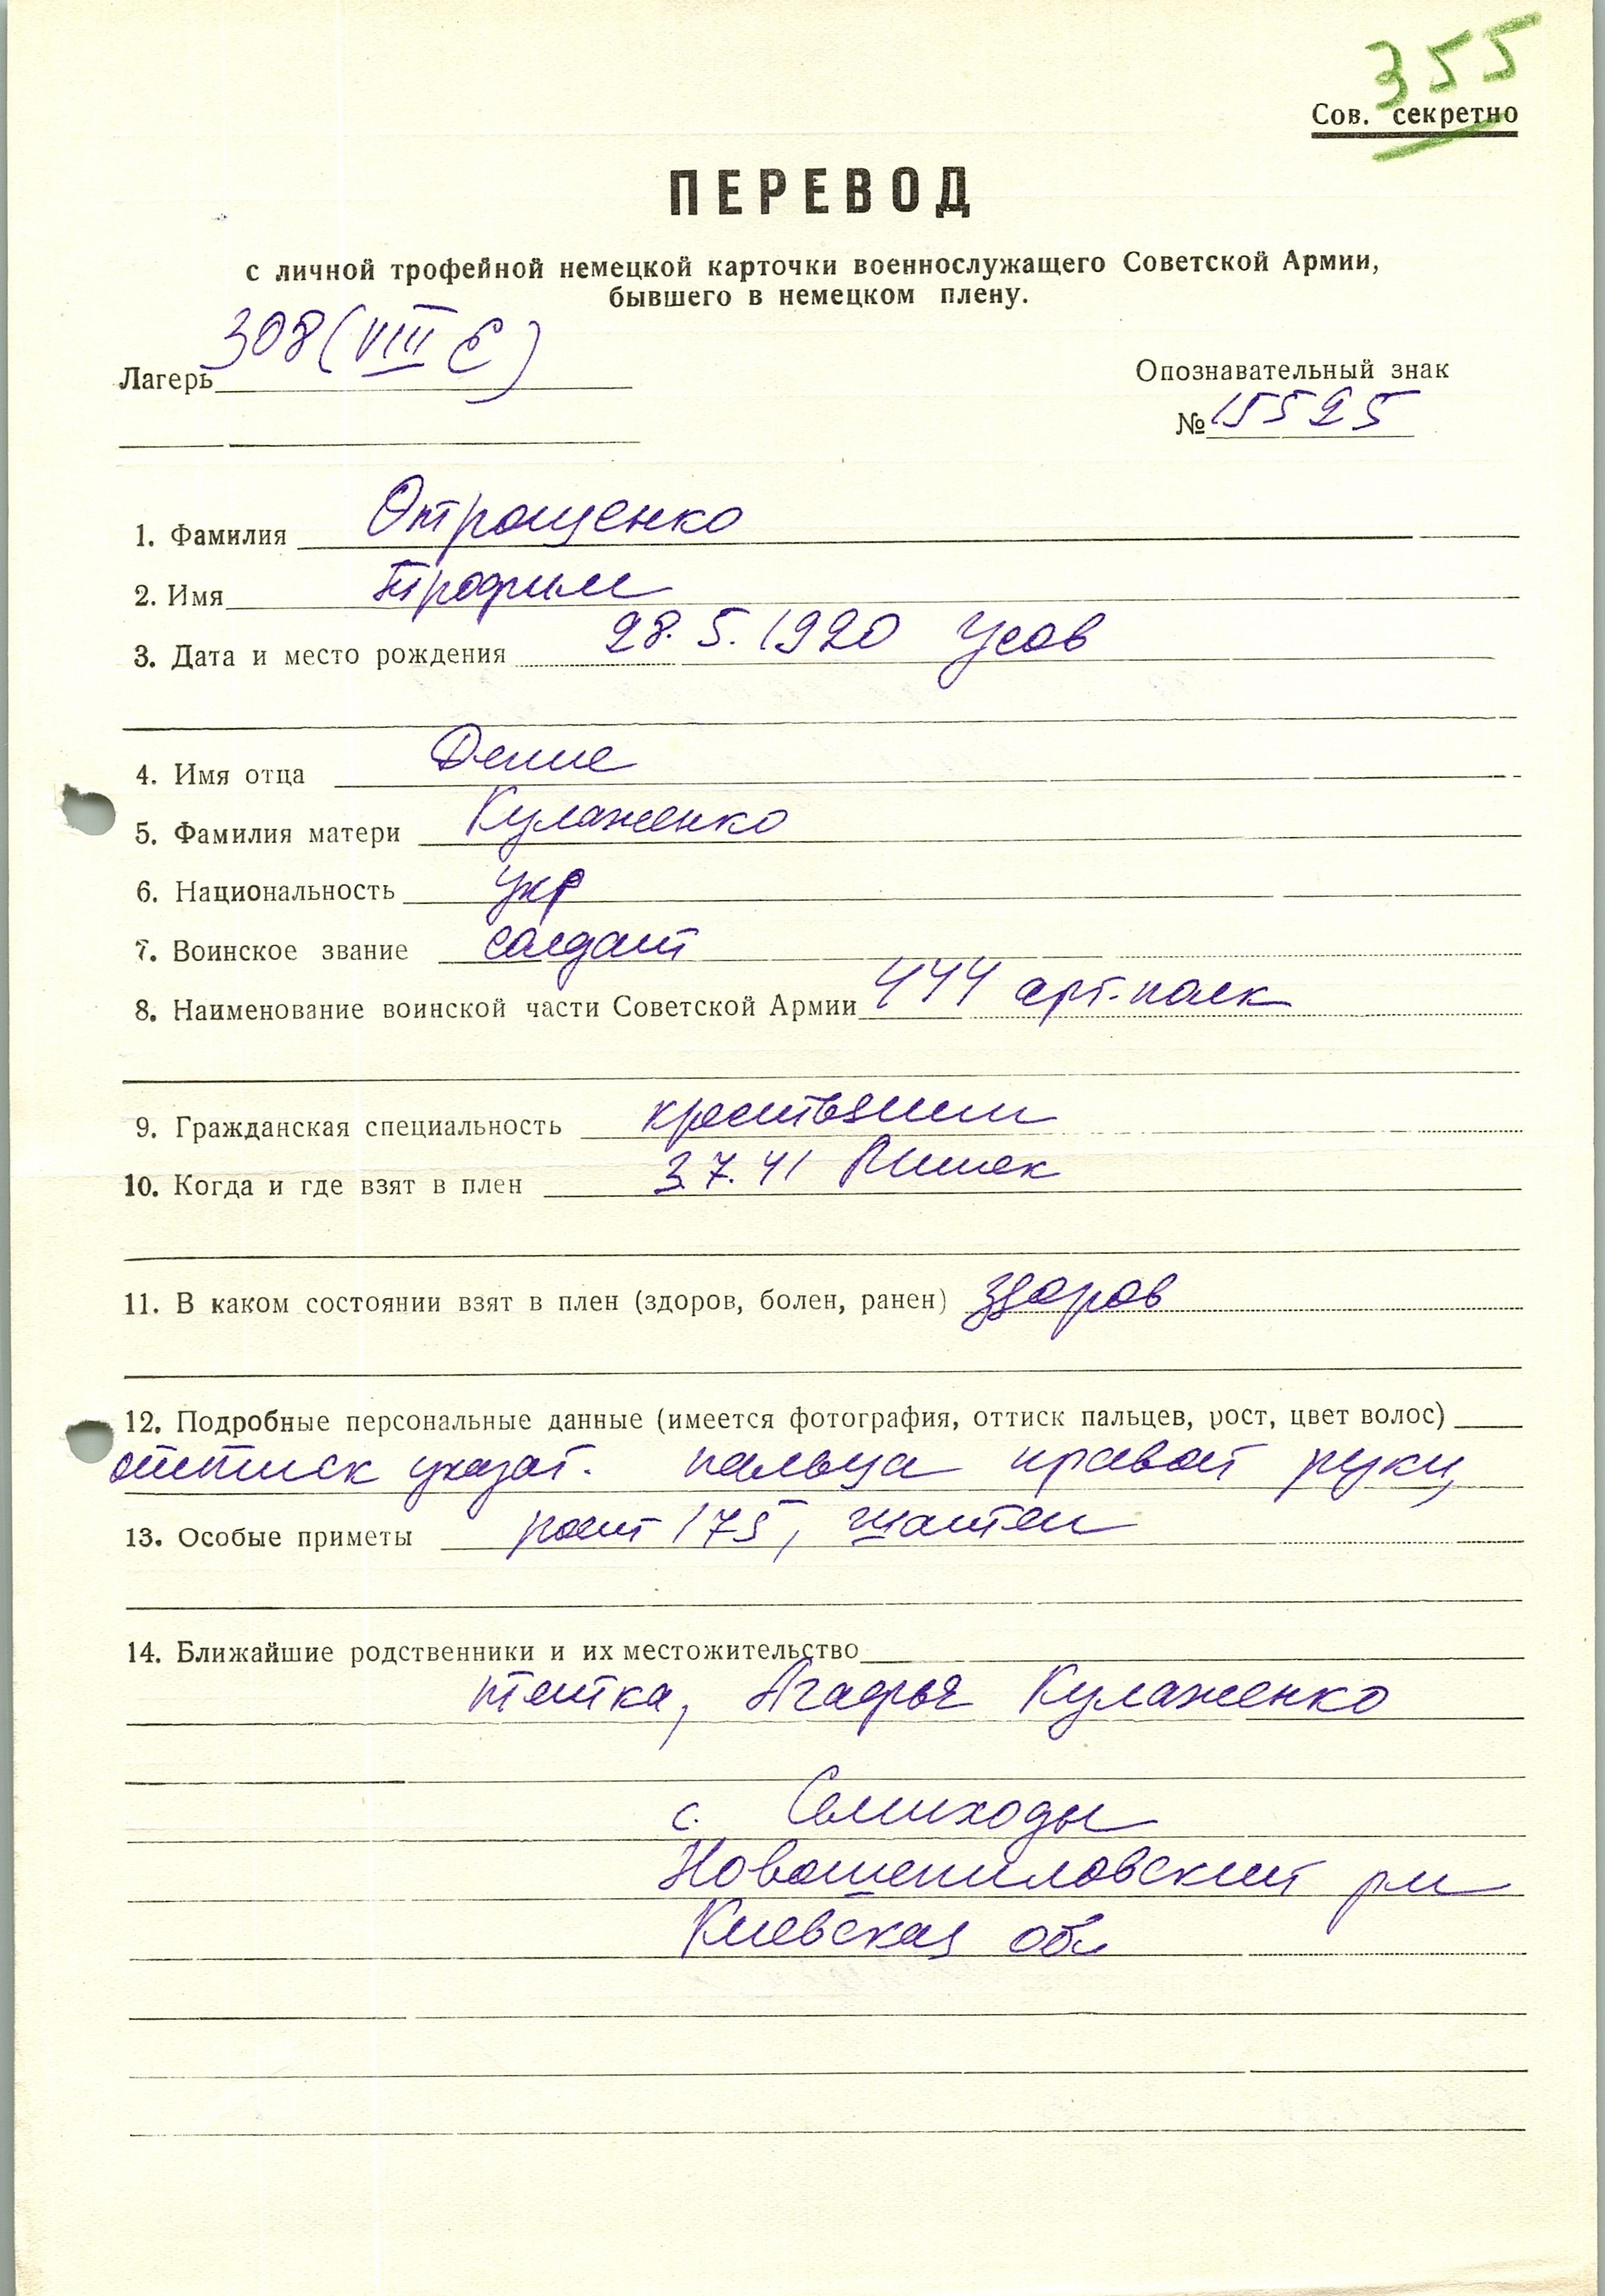 355
Сов. секретно
ПЕРЕВОД
с личной трофейной немецкой карточки военнослужащего Советской Армии,
бывшего в немецком плену.
Лагерь 308 (VIII E)
Опознавательный знак
№ 15525
1. Фамилия Отрощенко
2. Имя Трофим
3. Дата и место рождения 28.5.1920 Усов
4. Имя отца Денис
5. Фамилия матери Кулаженко
6. Национальность укр
7. Воинское звание солдат
8. Наименование воинской части Советской Армии 444 арт. полк
9. Гражданская специальность крестьянин
10. Когда и где взят в плен 3.7.41 Минск
11. В каком состоянии взят в плен (здоров, болен, ранен) здоров
12. Подробные персональные данные (имеется фотография, оттиск пальцев, рост, цвет волос)
оттиск указат. пальца правой руки,
13. Особые приметы рост 175, шатен
14. Ближайшие родственники и их местожительство
тетка, Агафья Кулаженко
с. Семиходы
Новошепиловский рн
Киевская обл